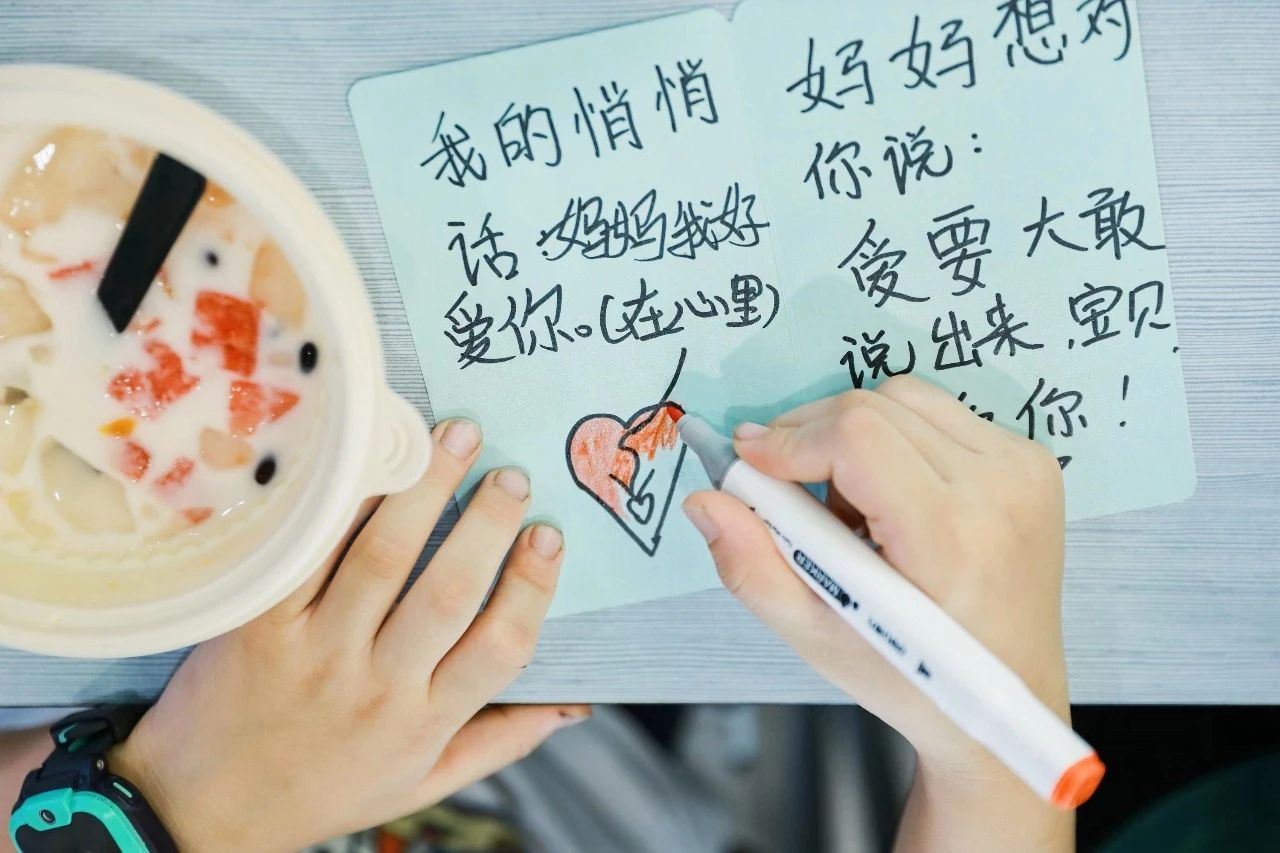 我的悄悄
话:妈妈我好
爱你。(在心里)
妈妈想对
你说:
爱要大敢
说出来,宝贝,
你!
MARKER